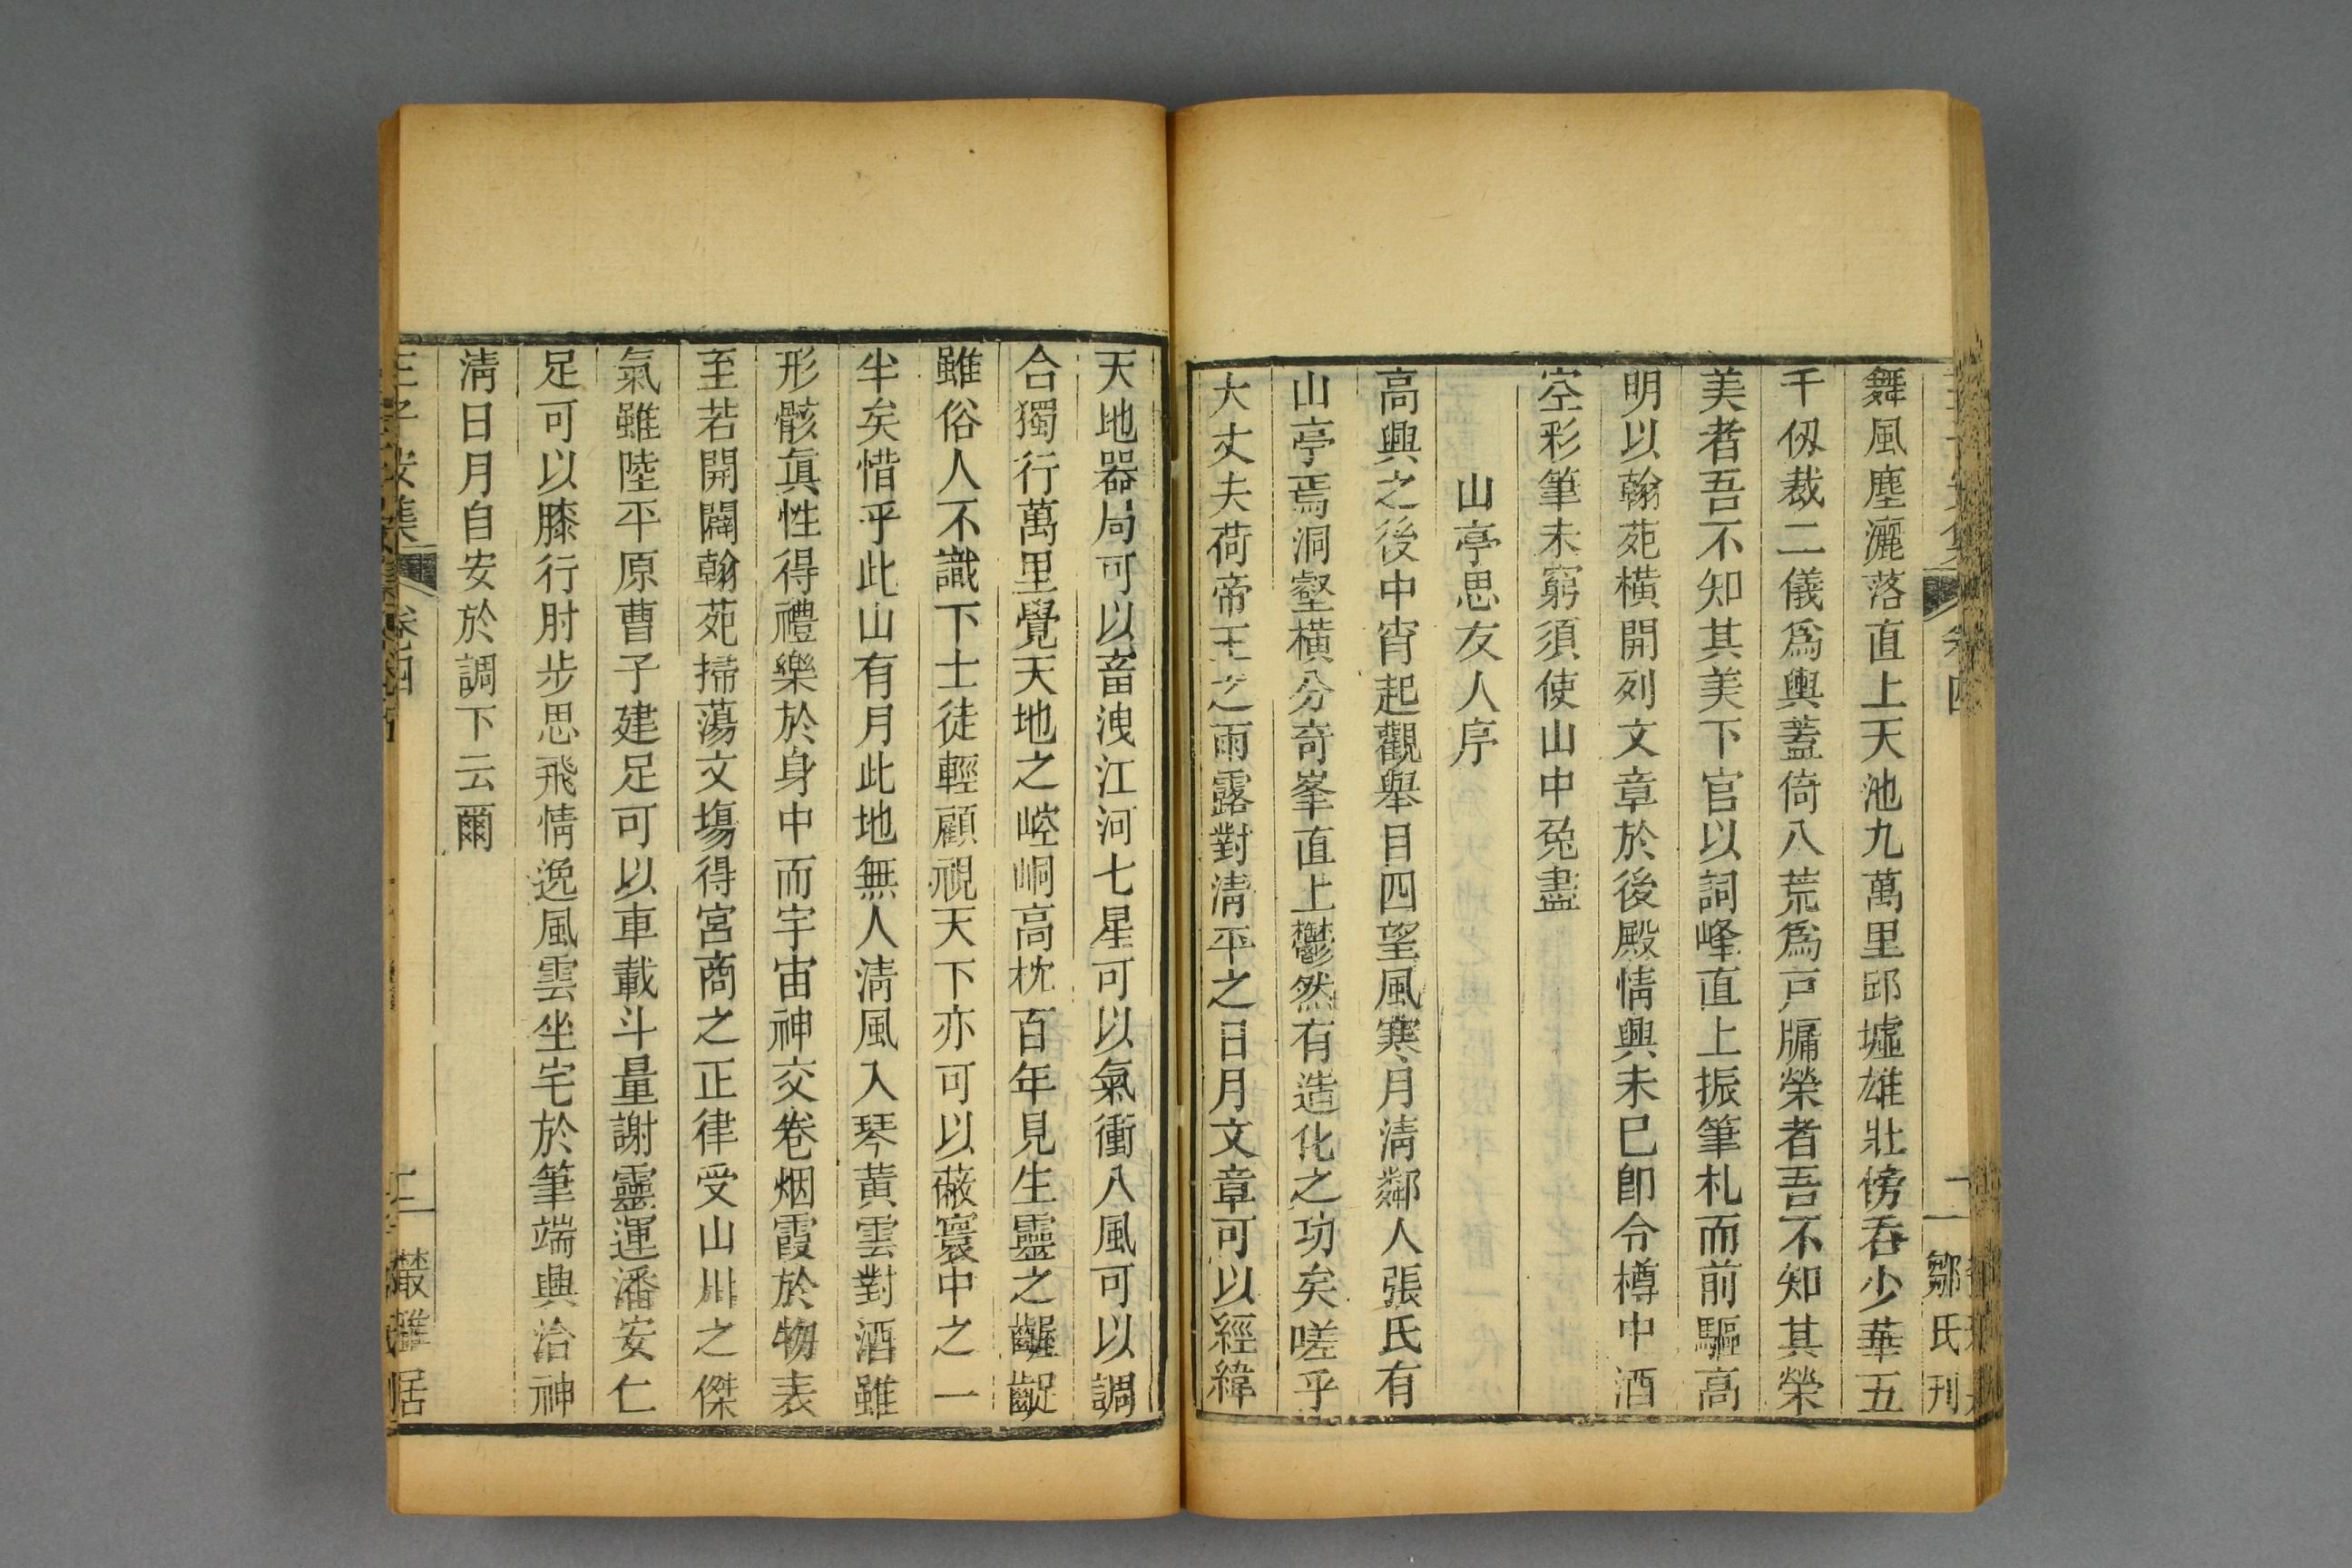 舞風塵灑落直上天池九萬里邱墟雄壯傍吞少華五
千仭裁二儀爲輿蓋倚八荒爲戸牖榮者吾不知其榮
美者吾不知其美下官以詞峰直上振筆札而前驅高
明以翰苑横開列文章於後殿情興未已卽令樽中酒
空彩筆未窮須使山中兎盡
山亭思友人序
高興之後中宵起觀舉目四望風寒月清鄰人張氏有
山亭焉洞壑横分奇峯直上鬱然有造化之功矣嗟乎
大丈夫荷帝王之雨露對清平之日月文章可以經緯
天地器局可以畜洩江河七星可以氣衝八風可以調
合獨行萬里覺天地之崆峒高枕百年見生靈之齷齪
雖俗人不識下士徒輕顧視天下亦可以蔽寰中之一
半矣惜乎此山有月此地無人清風入琴黄雲對酒雖
形骸眞性得禮樂於身中而宇宙神交卷烟霞於物表
至若開闢翰苑掃蕩文塲得宮商之正律受山川之傑
氣雖陸平原曹子建足可以車載斗量謝靈運潘安仁
足可以膝行肘步思飛情逸風雲坐宅於筆端興洽神
清日月自安於調下云爾
卷四
二
鄒氏刊